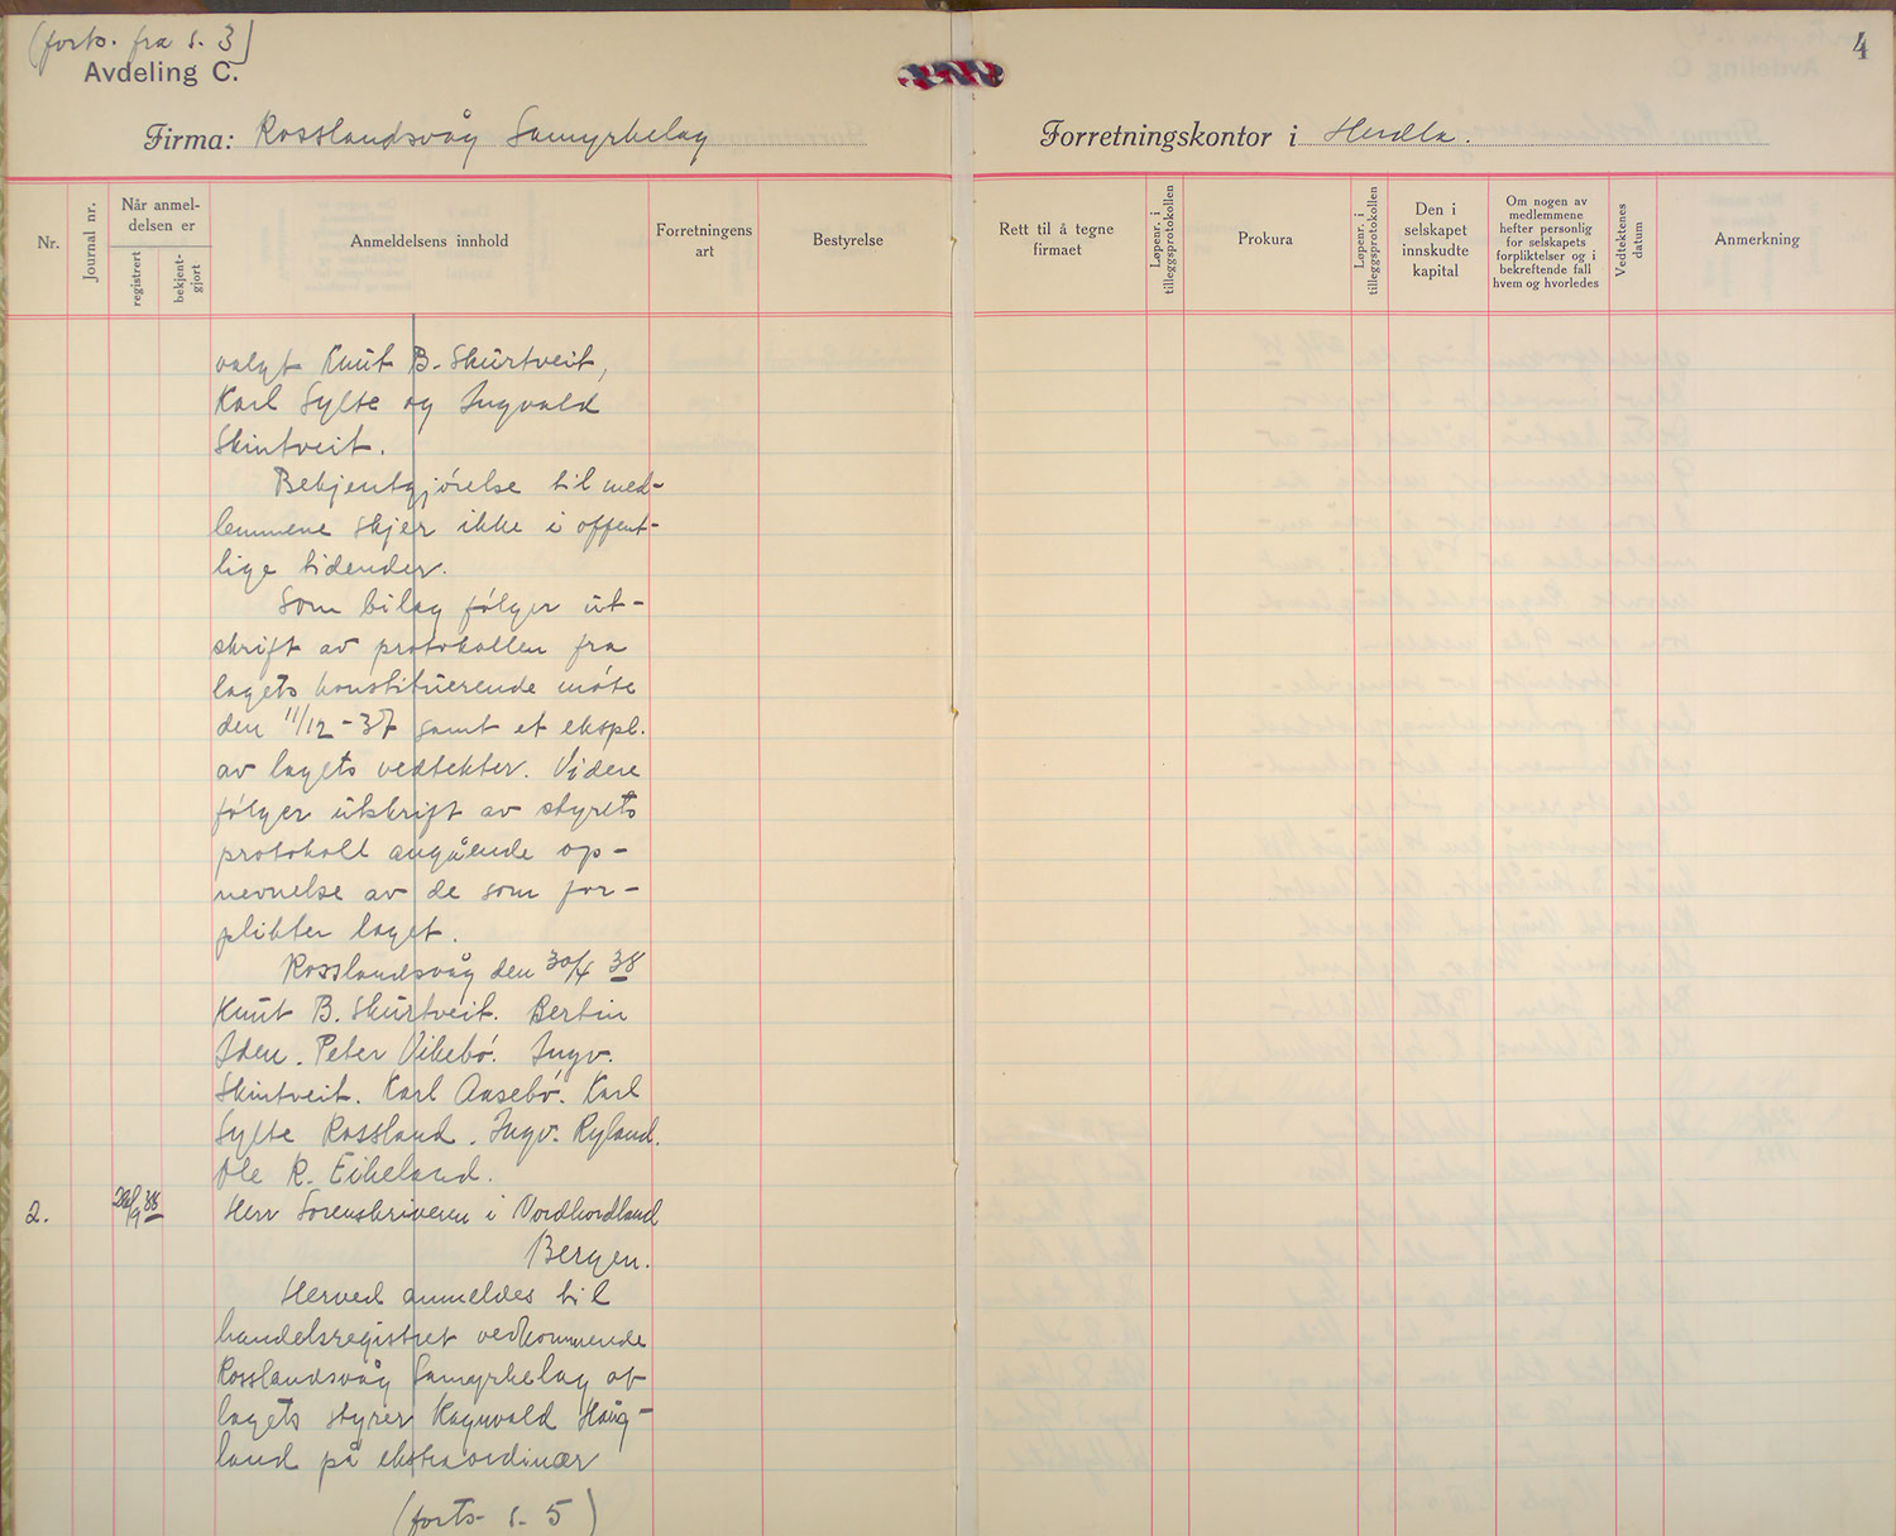 (forts. fra s. 3)
4
Avdeling C.
Firma: Rosslandsvåg Samyrkelag
Forretningskontor i Herdla.
Nr.
Journal nr.
Når anmel-
delsen er
registrert
bekjent-
gjort
Anmeldelsens innhold
Forretningens
art
Bestyrelse
Rett til å tegne
firmaet
Løpenr. i
tilleggsprotokollen
Prokura
Løpenr. i
tilleggsprotokollen
Den i
selskapet
innskudte
kapital
Om nogen av
medlemmene
hefter personlig
for selskapets
forpliktelser og i
bekreftende fall
hvem og hvorledes
Vedtektenes
datum
Anmerkning
valgt Knut B. Skurtveit,
Karl Sylte og Ingvald
Skintveit.
Bekjentgjørelse til med-
lemmene skjer ikke i offent-
lige tidender.
Som bilag følger ut-
skrift av protokollen fra
lagets konstituerende møte
den 11/12-37 samt et ekspl.
av lagets vedtekter. Videre
følger utskrift av styrets
protokoll angående op-
nevnelse av de som for-
plikter laget.
Rosslandsvåg den 30/4 38
Knut B. Skurtveit. Bertin
Iden. Peter Vikebø. Ingv.
Skintveit. Karl Aasebø. Karl
Sylte Rossland. Ingv. Ryland.
Ole R. Eikeland.
2. 28/9 38 Herr Sorenskriveren i Nordhordland
Bergen.
Herved anmeldes til
handelsregistret vedkommende
Rosslandsvåg Samyrkelag at
lagets styrer Ragnvald Haug-
land på ekstraordinær
(forts. s. 5)